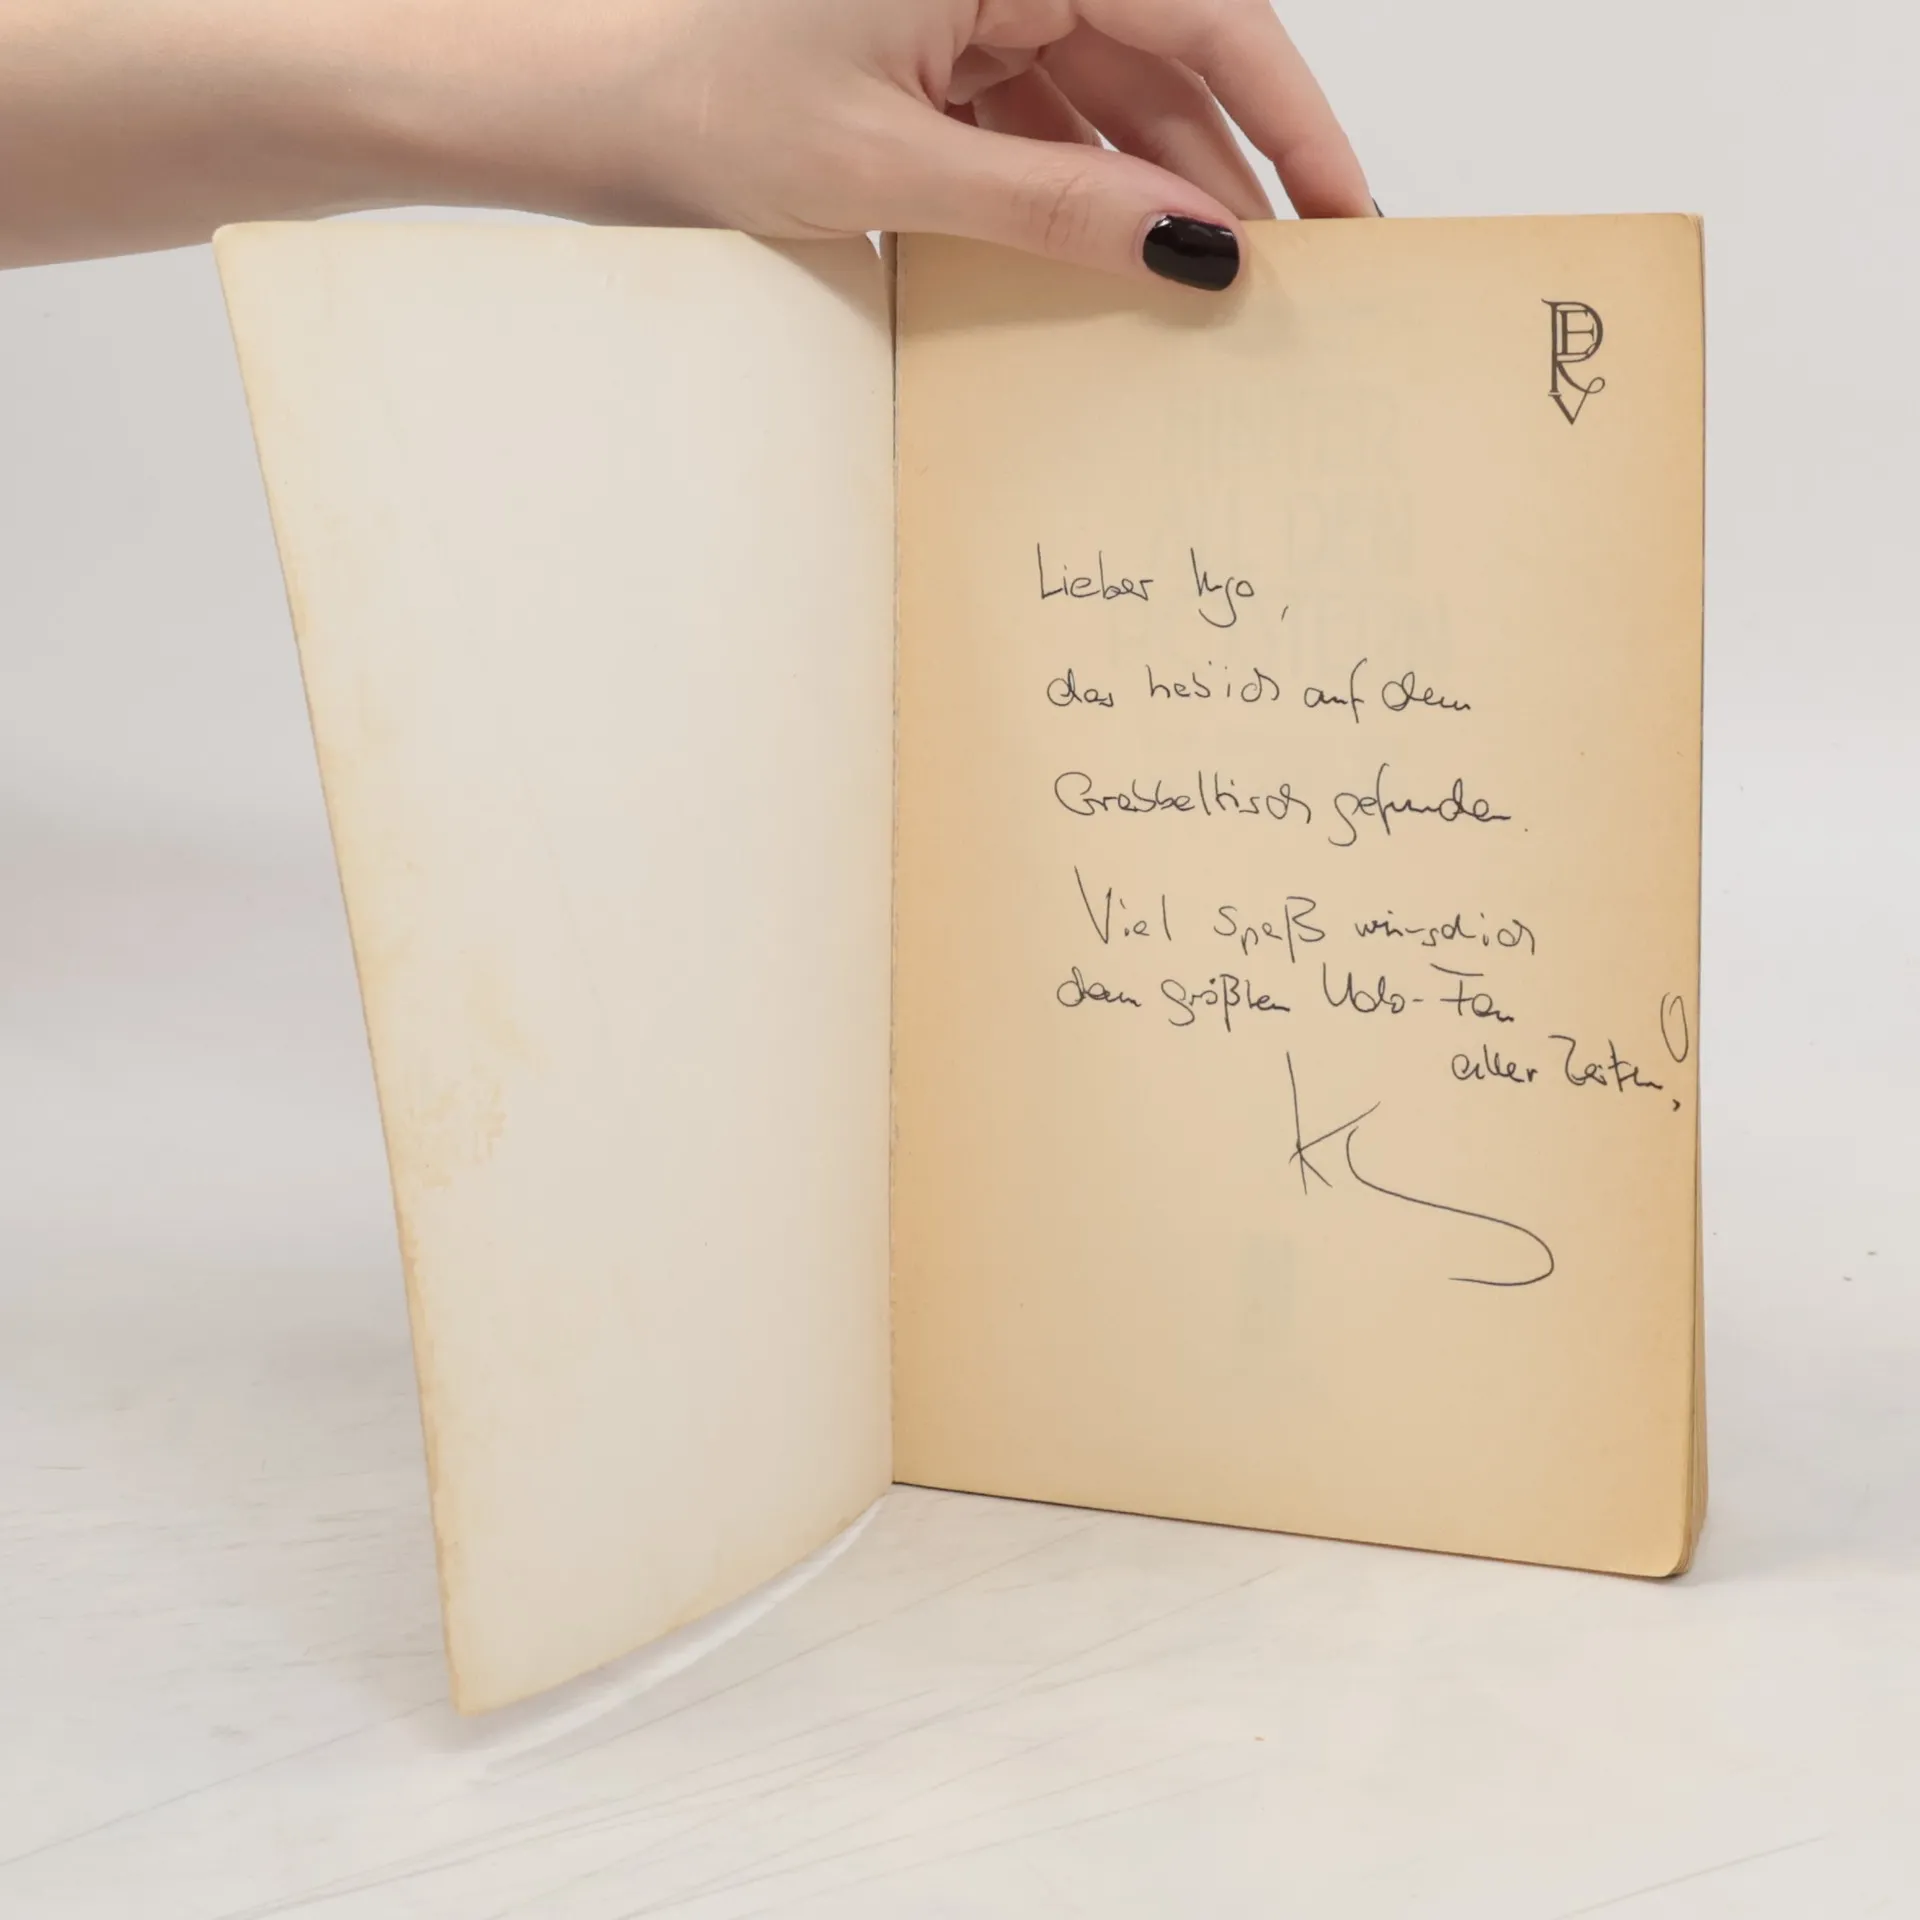 PERV
Lieber Ingo,
das hab ich auf dem
Grabbeltisch gefunden.
Viel Spaß wünsch ich
dem größten Udo-Fan
aller Zeiten!
KS